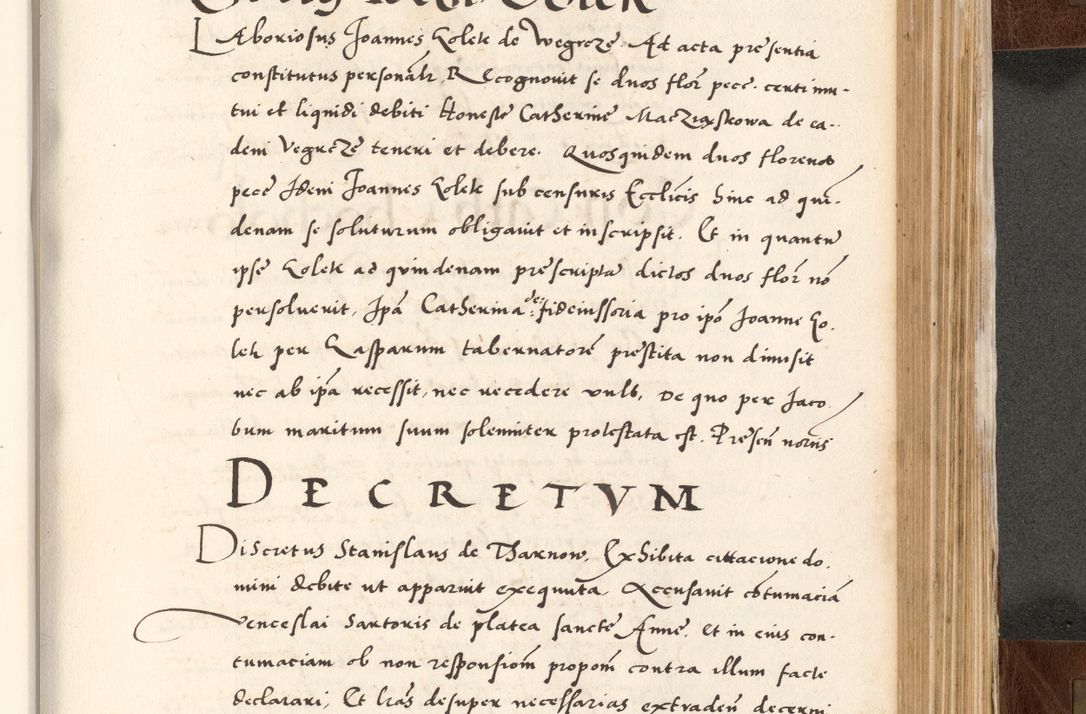 Laboriosus Joannes Kolek de Wegrcze Ad acta presentia
constitutus personalr, Recognouit se duos flor pecc. certi mu-
tui et liquidi debiti Honeste Catherine Maczigskowa de ea-
dem Vegrcze teneri et debere. Quosquidem duos florenos
pecc Idem Joannes Kolek sub censuris Ecclicis hinc ad quī-
denam se soluturum obligauit et inscripsit. Et in quantū
ipse Kolek ad quindenam prescriptā dictos duos flor nō
persoluerit, Ipā Catherina de fideiussoria pro ipō Joanne Ko.
lek per Gasparum tabernatorē prestita non dimisit
nec ab ipā recessit, nec recedere vult, De quo per Jaco
bum maritum suum solemniter protestata est. Presen̄
DECRETVM
Discretus Stanislaus de Tharnow. Exhibita cittacione do.
mini debite ut apparuit exequuta, Accusauit cōtumaciā
Venceslai Sartoris de platea sancte Anne, Et in eius con-
tumaciam ob non responsiom propom contra illum facte
declarari, Et lrās desuper necessarias extraden̄ decerni